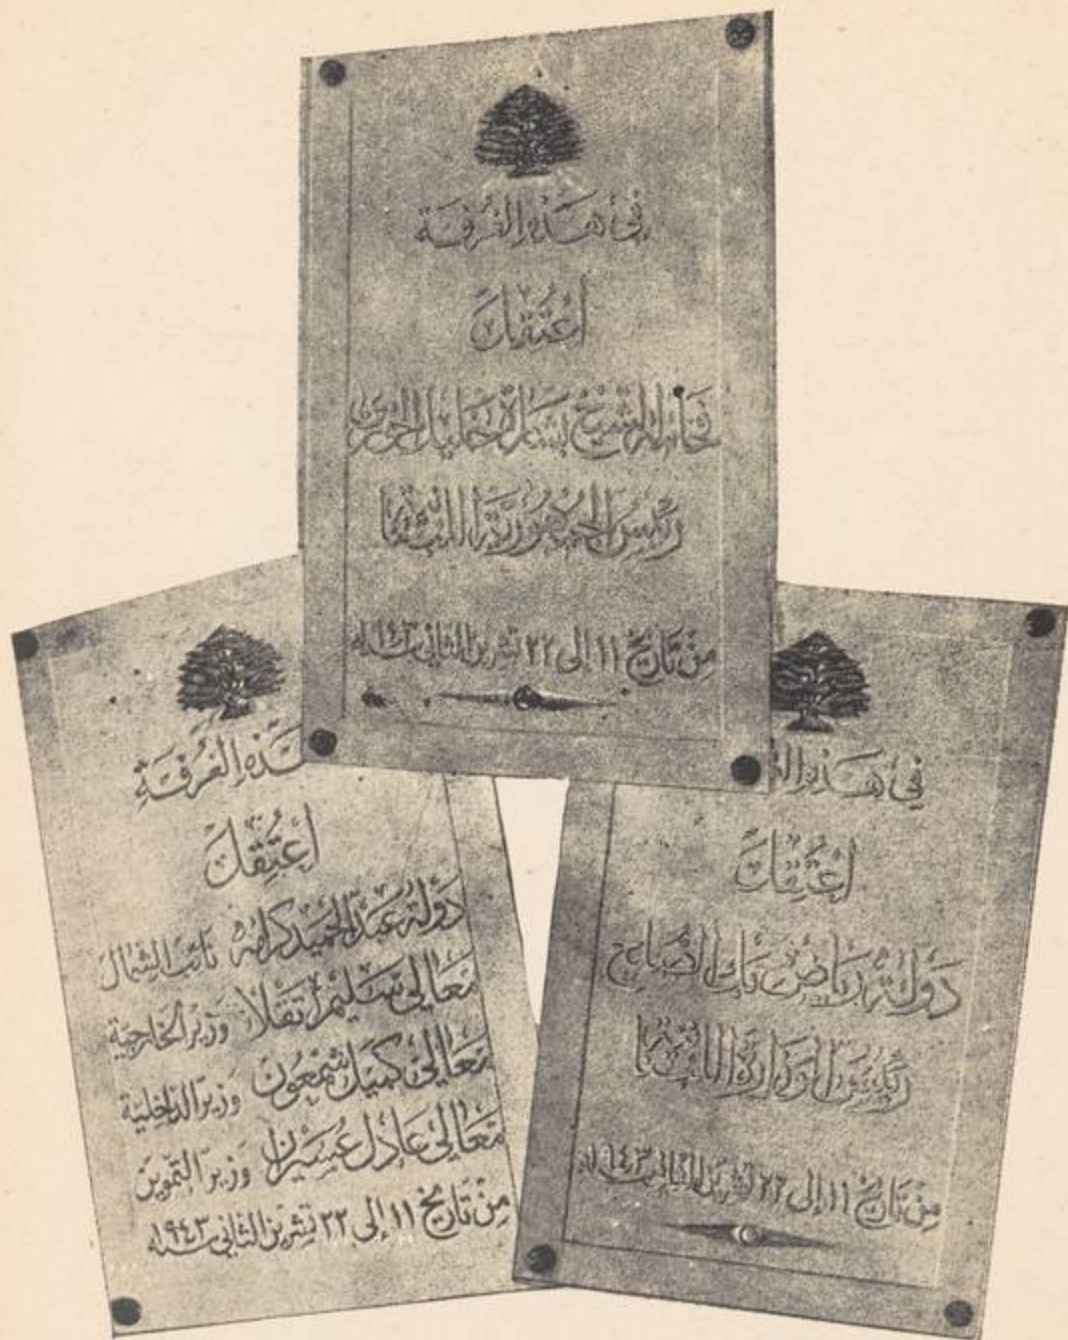 في هذه الغرفة
اعتقل
فخامة الشيخ بشارة خليل الخوري
رئيس الجمهورية اللبنانية
من تاريخ ١١ إلى ٢٢ تشرين الثاني سنة
ـذه الغرفة
اعتُقِل
دولة عبد الحميد كرامه نائب الشمال
معالي سليم تقلا وزير الخارجية
معالي كميل شمعون وزير الداخلية
معالي عادل عسيران وزير التموين
من تاريخ ١١ إلى ٢٢ تشرين الثاني سنة ١٩٤٣
في هذه
اعتقل
دولة رياض بك الصلح
رئيس الوزارة اللبنانية
من تاريخ ١١ إلى ٢٢ تشرين الثاني سنة ١٩٤٣